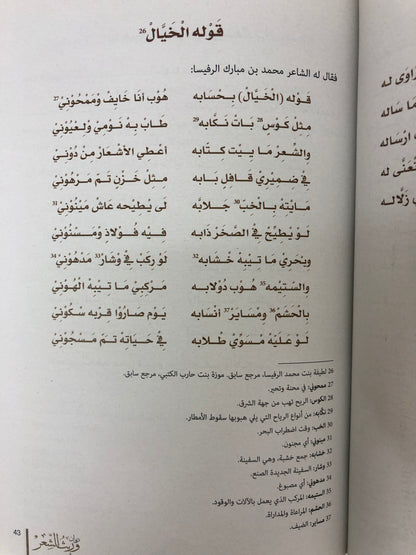 قَوْله الْخَيَّالْ 26
فقال له الشاعر محمد بن مبارك الرفيسا:
قَوْله (الْخَيَّالْ) بِحْسَابه هُوْب أنَا خَايِف وْمَمْحُونِيْ 27
مِثِلْ كَوْس 28 بَاتْ نَكَّابه 29 طَابْ بِهْ نَوْمِي وِلْعْيُوْنِيْ
والشِّعْر مَا يِيتْ كِتَّابه أعْطِي الأشْعَار مْنْ دُوْنِيْ
في ضِمِيْرِي قَافِلٍ بَابه مِثِلْ خَزْنٍ تَمّ مَرْهُوْنِيْ
مَايِتِهْ بِالْخَبّ 30 جَلَابه لَى يْطَيْحه عَاشْ مَيْنُوْنِيْ 31
لَوْ يِطِيْحْ في الصَّخَرْ ذَابه فِيْه فُوْلاذٍ وْمَسْنُوْنِيْ
وبْحَرِي مَا تِيْبِهْ خْشَابه 32 لَوْ رِكَبْ في وْشَار 33 مَدْهُوْنِيْ 34
والسِّتِيْمه 35 هُوْب دُوْلابه مَرْكِبِيْ مَا تِيْبِهْ الْهُوْنِيْ
بِالْحَشِمْ 36 وِمْسَايَرْ 37 أنْسَابه يَوْم صَارَوْا قِرْبه سْكُوْنِيْ
لَوْ عَلَيْهْ مْسَوِّيْ طْلابه في حَيَاتهْ تَمّ مَسْجُوْنِيْ
26 لطيفة بنت محمد الرفيسا، مرجع سابق. موزة بنت حارب الكتبي، مرجع سابق.
27 ممحوني: في محنة وتحير.
28 الكوس: الريح تهب من جهة الشرق.
29 نكّابه: من أنواع الرياح التي يلي هبوبها سقوط الأمطار.
30 الخب: وقت اضطراب البحر.
31 مينوني: أي مجنون.
32 خشابه: جمع خشبة، وهي السفينة.
33 وشار: السفينة الجديدة الصنع.
34 مدهوني: أي مصبوغ.
35 الستيمه: المركب الذي يعمل بالآلات والوقود.
36 الحشم: المراعاة والمداراة.
37 مساير: الضيف.
ديوان
وريث الشعر
43
زَاوَى له
مَا سَاله
ارْسَاله
تْعَنَّى له
زَلّاله